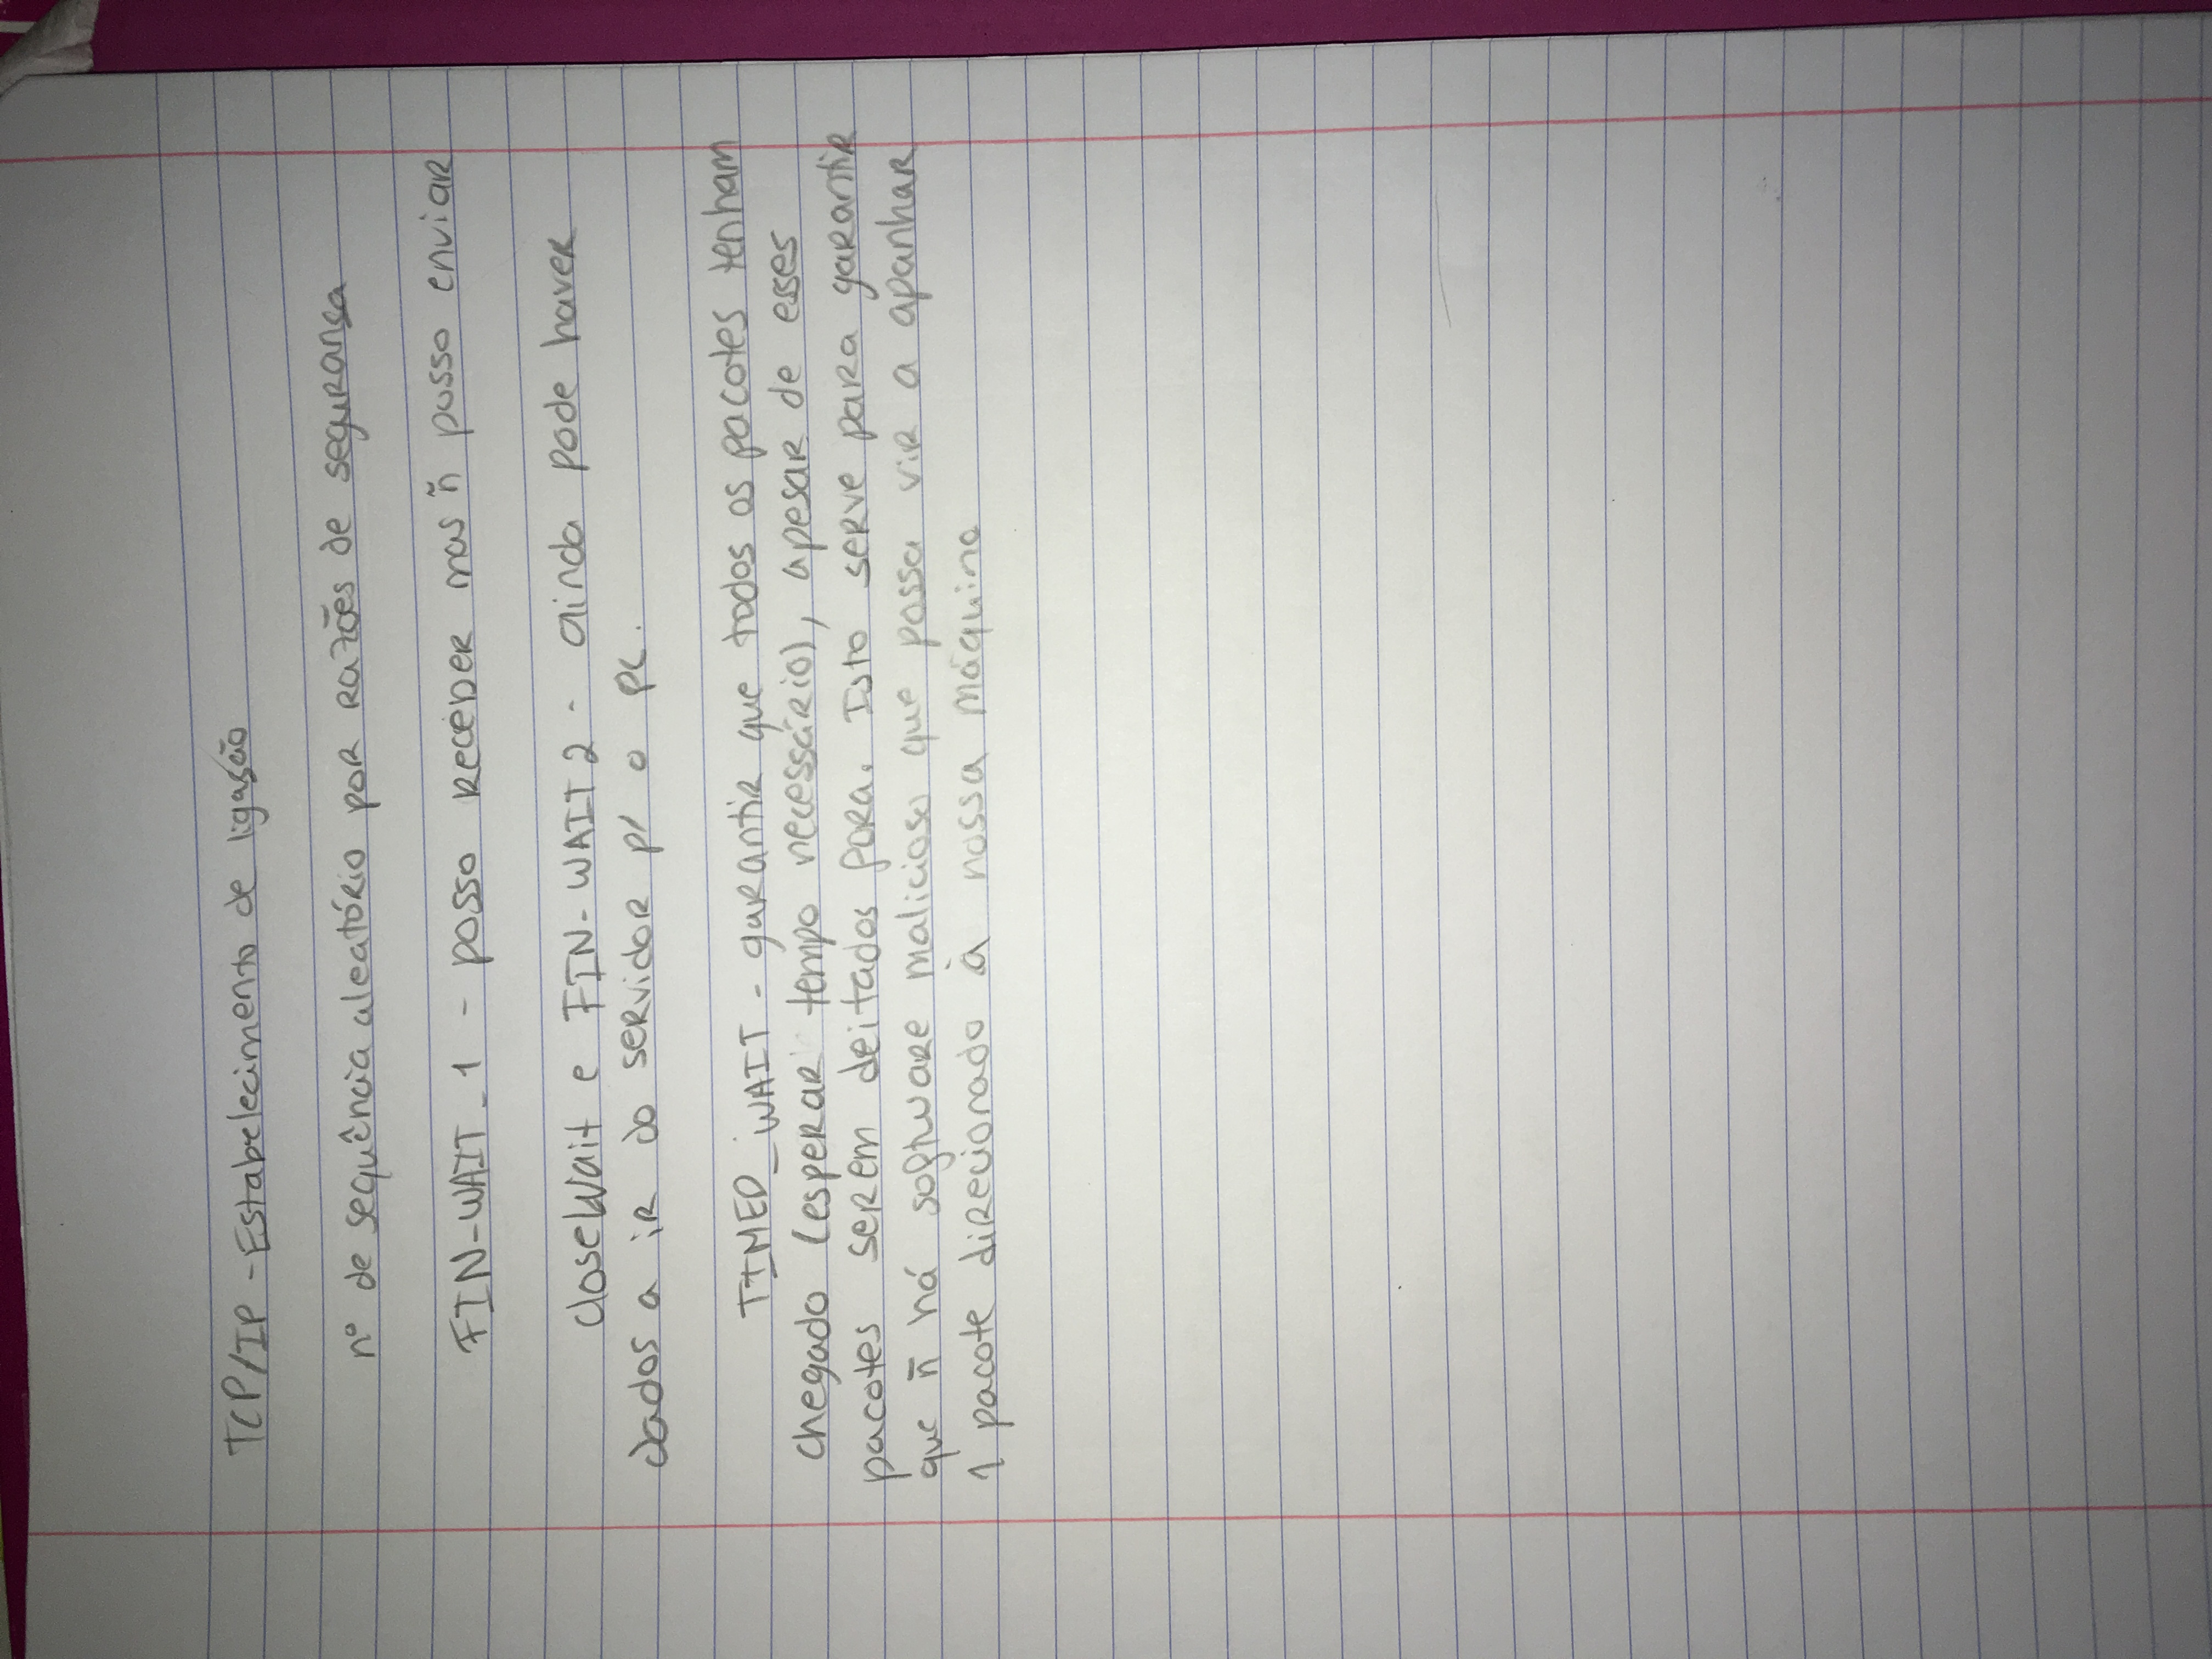 TCP/IP - Estabelecimento de ligação
nº de sequência aleatório por razões de segurança
FIN-WAIT_1 - posso receber mas ñ posso enviar
CloseWait e FIN-WAIT2 - ainda pode haver
dados a ir do servidor p/ o pc.
TIMED_WAIT - garantir que todos os pacotes tenham
chegado (esperar tempo necessário), apesar de esses
pacotes serem deitados fora. Isto serve para garantir
que ñ há software malicioso que possa vir a apanhar
1 pacote direcionado à nossa máquina